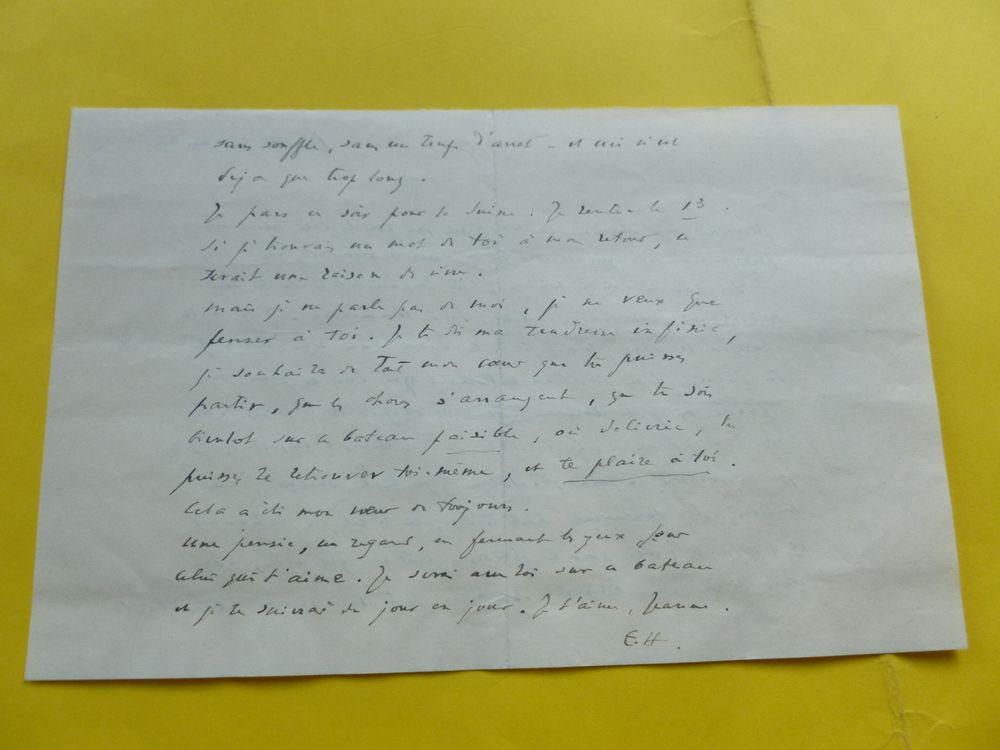 sans souffle, sans un temps d'arrêt - et ceci n'est
déjà que trop long.
Je pars ce soir pour la Suisse. Je rentre le 13.
Si je trouvais un mot de toi à mon retour, ce
serait une raison de vivre.
Mais je ne parle pas de moi, je ne veux que
penser à toi. Je te dis ma tendresse infinie,
je souhaite de tout mon cœur que tu puisses
partir, que les choses s'arrangent, que tu sois
bientôt sur ce bateau paisible, où délivrée, tu
puisses te retrouver toi-même, et te plaire à toi.
Cela a été mon vœu de toujours.
Une pensée, un regard, en fermant les yeux pour
celui qui t'aime. Je serai avec toi sur ce bateau
et je te suivrai de jour en jour. Je t'aime, Jeanne.
E.H.